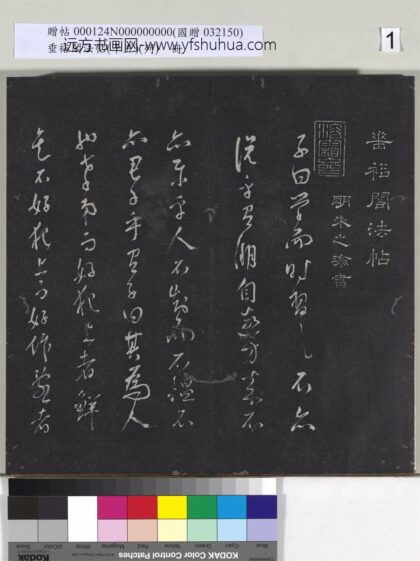 贈帖 000124N000000000(國贈 032150)
远方书画网-www.yfshuhua.com
1
垂裕閣法帖
明朱之瑜書
子曰學而時習之不亦
說乎有朋自遠方來不
亦樂乎人不知而不慍不
亦君子乎有子曰其為人
也孝弟而好犯上者鮮
矣不好犯上而好作亂者
KODAK Color Control Patches
Blue Cyan Green Yellow Red Magenta White 3/Color Black
Kodak